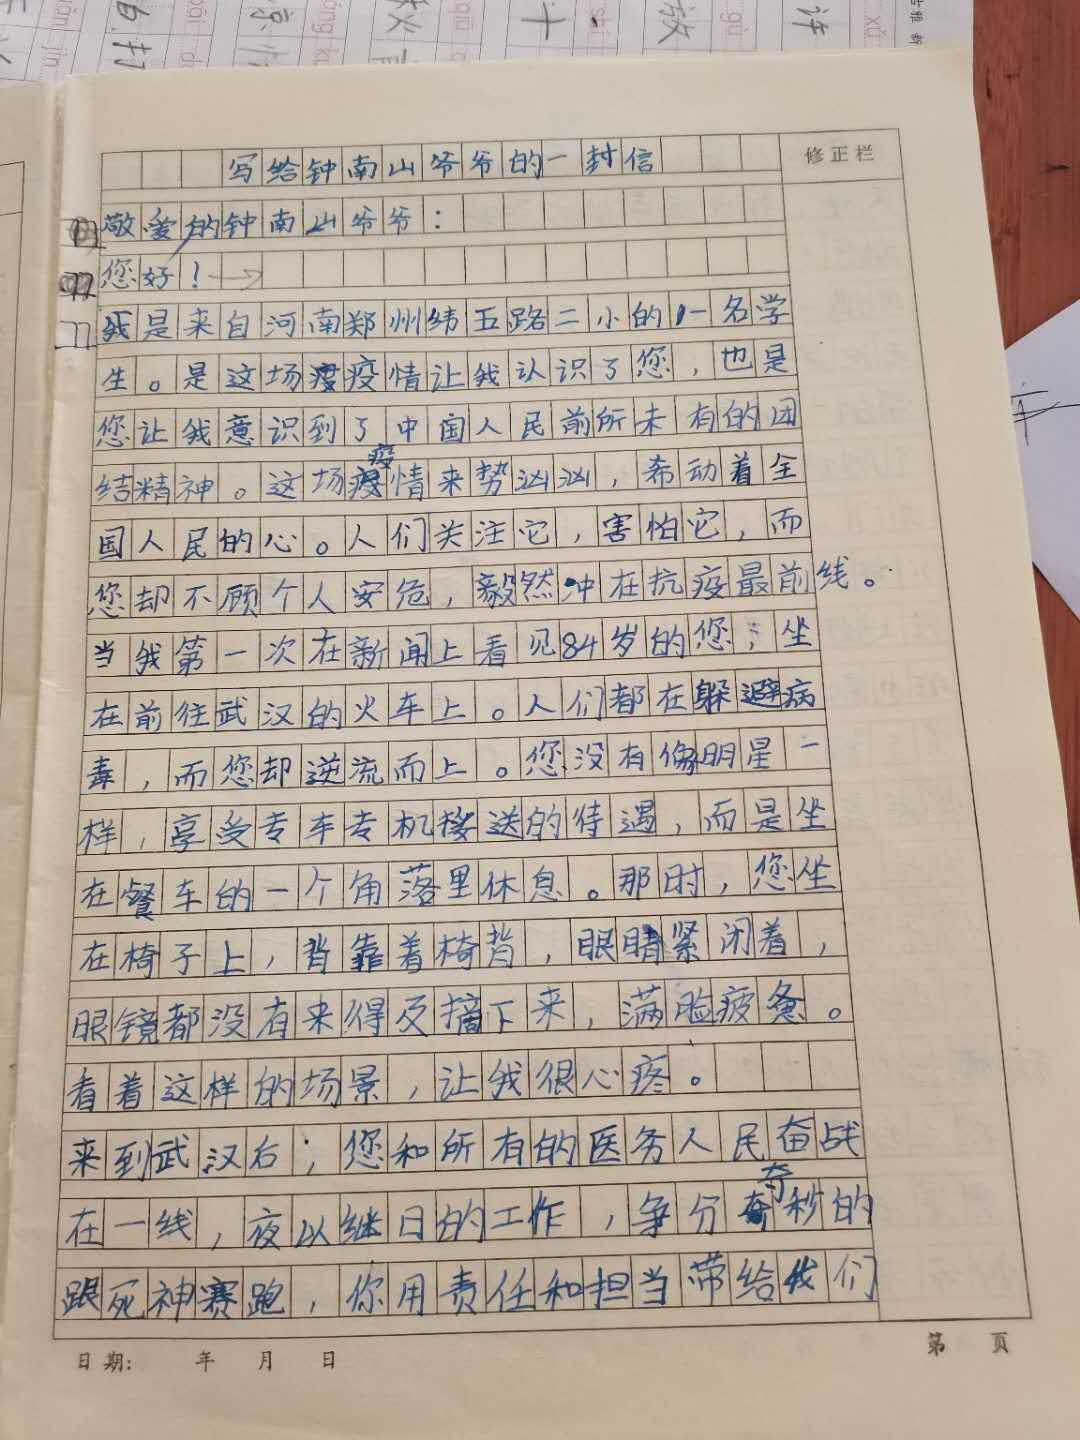 写给钟南山爷爷的一封信
修正栏
敬爱的钟南山爷爷：
您好！
我是来自河南郑州纬五路二小的一名学
生。是这场疫情让我认识了您，也是
您让我意识到了中国人民前所未有的团
结精神。这场疫情来势汹汹，牵动着全
国人民的心。人们关注它，害怕它，而
您却不顾个人安危，毅然冲在抗疫最前线。
当我第一次在新闻上看见84岁的您，坐
在前往武汉的火车上。人们都在躲避病
毒，而您却逆流而上。您没有像明星一
样，享受专车专机接送的待遇，而是坐
在餐车的一个角落里休息。那时，您坐
在椅子上，背靠着椅背，眼睛紧闭着，
眼镜都没有来得及摘下来，满脸疲惫。
看着这样的场景，让我很心疼。
来到武汉后，您和所有的医务人民奋战
在一线，夜以继日的工作，争分夺秒的
跟死神赛跑，你用责任和担当带给我们
日期： 年 月 日
第 页